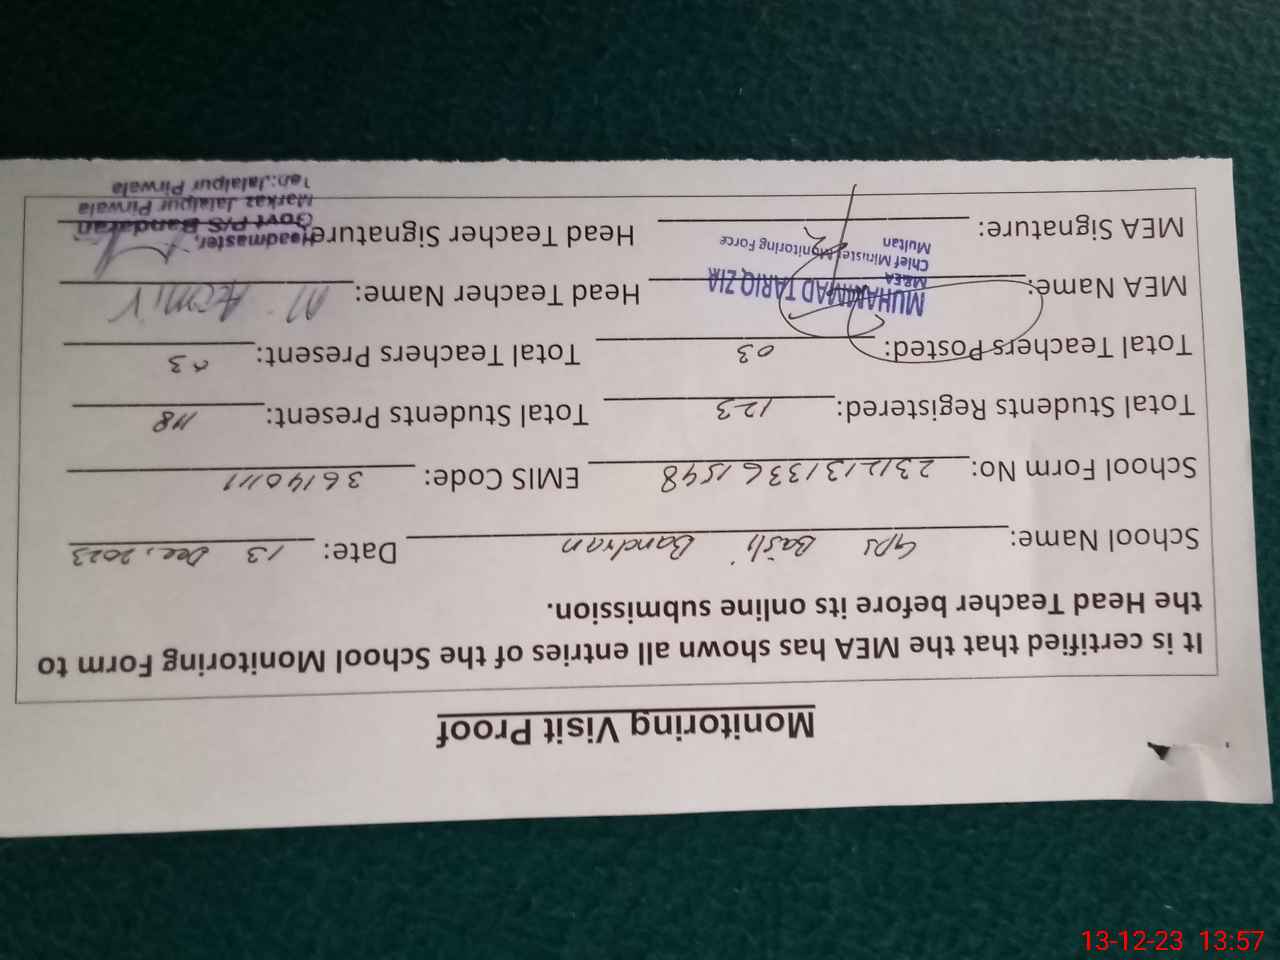 Monitoring Visit Proof
It is certified that the MEA has shown all entries of the School Monitoring Form to
the Head Teacher before its online submission.
School Name: GPS Basti Bandran Date: 13 Dec, 2023
School Form No: 23121313361548 EMIS Code: 36140111
Total Students Registered: 123 Total Students Present: 118
Total Teachers Posted: 03 Total Teachers Present: 03
MEA Name: MUHAMMAD TARIQ ZIA Head Teacher Name: M.
M&EA
Chief Minister Monitoring Force
Multan
MEA Signature: Head Teacher Signature:
Headmaster,
Govt P/S Bandaran
Markaz Jalalpur Pirwala
Teh: Jalalpur Pirwala
13-12-23 13:57